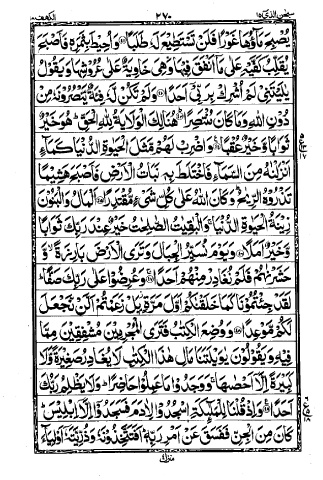 سبحن الذی ١٥ ٢٧٠ الکهف ١٨
يُصْبِحَ مَآؤُهَا غَوْرًا فَلَنْ تَسْتَطِيْعَ لَهٗ طَلَبًا ﴿٤١﴾ وَاُحِيْطَ بِثَمَرِهٖ فَاَصْبَحَ
يُقَلِّبُ كَفَّيْهِ عَلٰى مَآ اَنْفَقَ فِيْهَا وَهِىَ خَاوِيَةٌ عَلٰى عُرُوْشِهَا وَيَقُوْلُ
يٰلَيْتَنِىْ لَمْ اُشْرِكْ بِرَبِّىْۤ اَحَدًا ﴿٤٢﴾ وَلَمْ تَكُنْ لَّهٗ فِئَةٌ يَّنْصُرُوْنَهٗ مِنْ
دُوْنِ اللّٰهِ وَمَا كَانَ مُنْتَصِرًا ﴿٤٣﴾ هُنَالِكَ الْوَلَايَةُ لِلّٰهِ الْحَقِّ ؕ هُوَ خَيْرٌ
ثَوَابًا وَّخَيْرٌ عُقْبًا ﴿٤٤﴾ وَاضْرِبْ لَهُمْ مَّثَلَ الْحَيٰوةِ الدُّنْيَا كَمَآءٍ
اَنْزَلْنٰهُ مِنَ السَّمَآءِ فَاخْتَلَطَ بِهٖ نَبَاتُ الْاَرْضِ فَاَصْبَحَ هَشِيْمًا
تَذْرُوْهُ الرِّيٰحُ ؕ وَكَانَ اللّٰهُ عَلٰى كُلِّ شَىْءٍ مُّقْتَدِرًا ﴿٤٥﴾ اَلْمَالُ وَالْبَنُوْنَ
زِيْنَةُ الْحَيٰوةِ الدُّنْيَا ۚ وَالْبٰقِيٰتُ الصّٰلِحٰتُ خَيْرٌ عِنْدَ رَبِّكَ ثَوَابًا
وَّخَيْرٌ اَمَلًا ﴿٤٦﴾ وَيَوْمَ نُسَيِّرُ الْجِبَالَ وَتَرَى الْاَرْضَ بَارِزَةً ۙ وَّ
حَشَرْنٰهُمْ فَلَمْ نُغَادِرْ مِنْهُمْ اَحَدًا ﴿٤٧﴾ وَعُرِضُوْا عَلٰى رَبِّكَ صَفًّا ؕ
لَقَدْ جِئْتُمُوْنَا كَمَا خَلَقْنٰكُمْ اَوَّلَ مَرَّةٍۭ ۫ بَلْ زَعَمْتُمْ اَلَّنْ نَّجْعَلَ
لَكُمْ مَّوْعِدًا ﴿٤٨﴾ وَوُضِعَ الْكِتٰبُ فَتَرَى الْمُجْرِمِيْنَ مُشْفِقِيْنَ مِمَّا
فِيْهِ وَيَقُوْلُوْنَ يٰوَيْلَتَنَا مَالِ هٰذَا الْكِتٰبِ لَا يُغَادِرُ صَغِيْرَةً وَّلَا
كَبِيْرَةً اِلَّآ اَحْصٰهَا ۚ وَوَجَدُوْا مَا عَمِلُوْا حَاضِرًا ؕ وَلَا يَظْلِمُ رَبُّكَ
اَحَدًا ﴿٤٩﴾ وَاِذْ قُلْنَا لِلْمَلٰٓئِكَةِ اسْجُدُوْا لِاٰدَمَ فَسَجَدُوْٓا اِلَّآ اِبْلِيْسَ ؕ
كَانَ مِنَ الْجِنِّ فَفَسَقَ عَنْ اَمْرِ رَبِّهٖ ؕ اَفَتَتَّخِذُوْنَهٗ وَذُرِّيَّتَهٗۤ اَوْلِيَآءَ